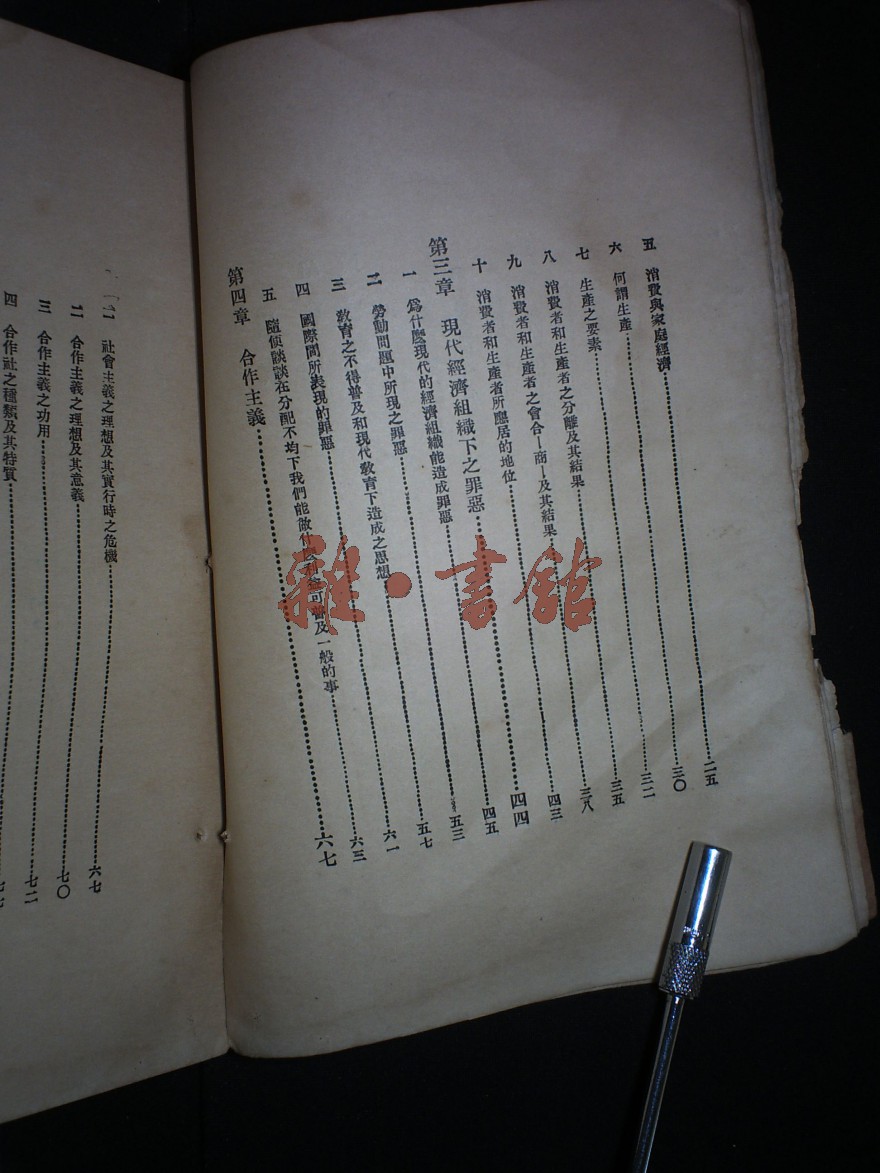 五　消費與家庭經濟……二五
六　何謂生產……三〇
七　生產之要素……三二
八　消費者和生產者之分離及其結果……三五
九　消費者和生產者之會合—商—及其結果……三八
十　消費者和生產者所應居的地位……四三
第三章　現代經濟組織下之罪惡……四四
一　爲什麽現代的經濟組織能造成罪惡……四五
二　勞動問題中所現之罪惡……五三
三　敎育之不得普及和現代敎育下造成之思想……五七
四　國際間所表現的罪惡……六一
五　隨偵談談在分配不均下我們能做什利益可普及一般的事……六三
第四章　合作主義……六七
社會主義之理想及其實行時之危機……六七
二　合作主義之理想及其意義……七〇
三　合作主義之功用……七二
四　合作社之種類及其特質……
雜·書館